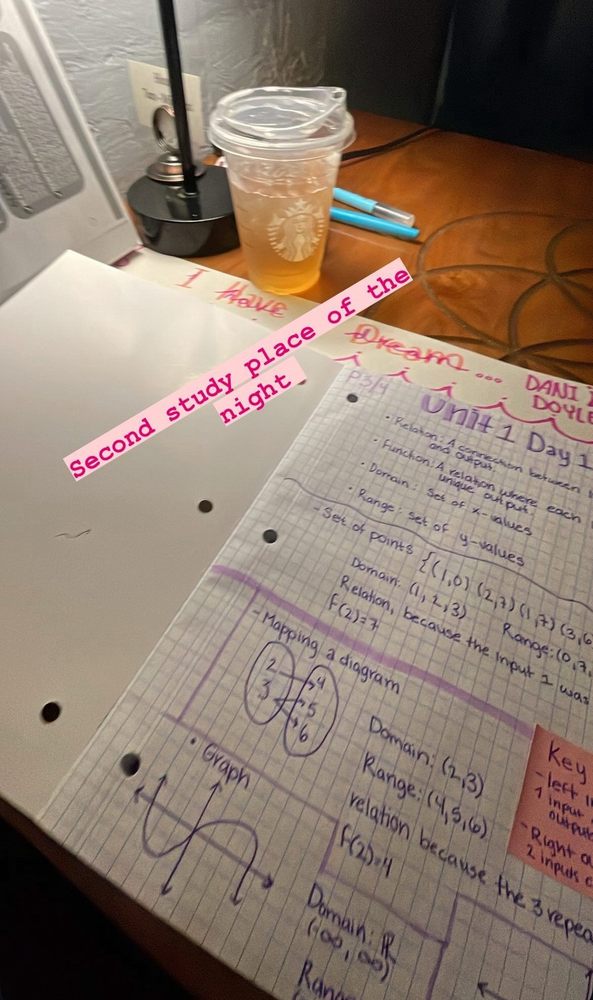 I Have
Dream...
DANI
DOYLE
Second study place of the
night
P3/4
Unit 1 Day 1
• Relation: A connection between
and output
• Function: A relation where each
unique output
• Domain: set of x-values
• Range: set of y-values
- Set of points {(1,0) (2,7) (1,7) (3,6
Domain: (1, 2, 3) Range: (0,7,
Relation, because the input 1 was
f(2)=7
- Mapping a diagram
2 4
3 5
6
Domain: (2,3)
Range: (4,5,6)
relation because the 3 repea
f(2)=4
Key
- left
1 input
outputs
- Right
2 inputs
• Graph
Domain: ℝ
(-∞, ∞)
Range